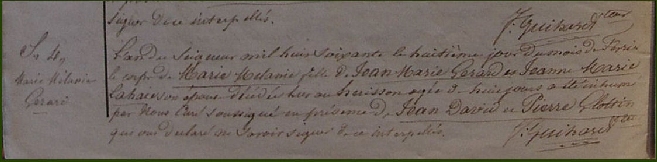 signer de ce interpellés.
J. Guihard
S. 4,
Marie Mélanie
Gerard
L'an du Seigneur mil huit soixante le huitième jour du mois de
le corps de Marie Mélanie fille de Jean Marie Gerard et Jeanne Marie
son épouse décédée hier au agée de huit jours a été inhumé
par Nous soussigné en présence de Jean David et Pierre Glotin
qui ont déclaré ne savoir signer de ce interpellés.
J. Guihard